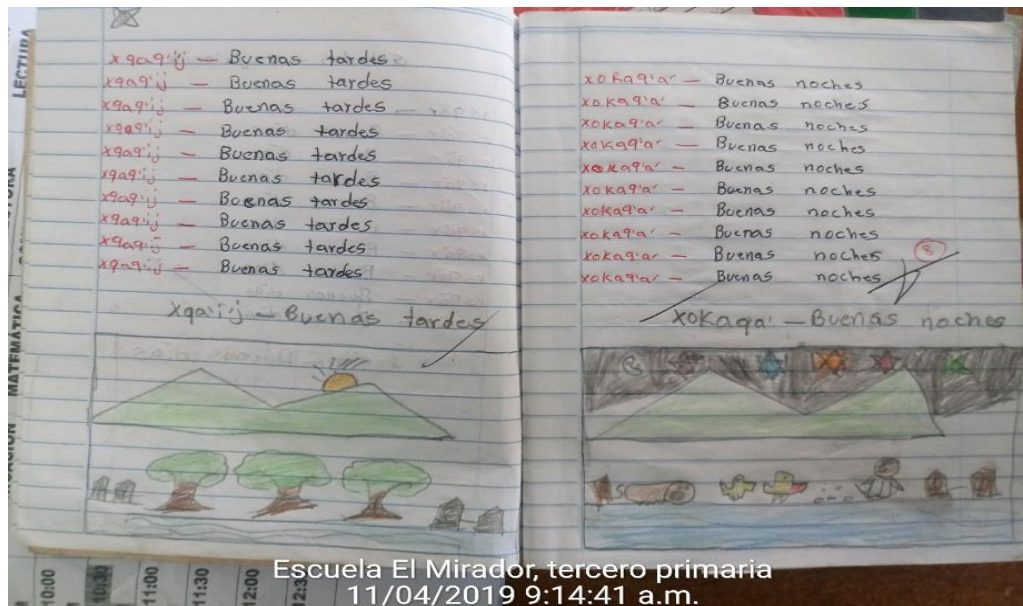 xqaq'ij — Buenas tardes
xqaq'ij — Buenas tardes
xqaq'ij — Buenas tardes
xqaq'ij — Buenas tardes
xqaq'ij — Buenas tardes
xqaq'ij — Buenas tardes
xqaq'ij — Buenas tardes
xqaq'ij — Buenas tardes
xqaq'ij — Buenas tardes
xqaq'ij — Buenas tardes
xqa'ij — Buenas tardes
xokaq'a' — Buenas noches
xokaq'a' — Buenas noches
xokaq'a' — Buenas noches
xokaq'a' — Buenas noches
xokaq'a' — Buenas noches
xokaq'a' — Buenas noches
xokaq'a' — Buenas noches
xokaq'a' — Buenas noches
xokaq'a' — Buenas noches
8
xokaq'a' — Buenas noches
xokaqa' — Buenas noches
LECTURA
MATEMÁTICA
10:00
10:30
11:00
11:30
12:00
12:30
Escuela El Mirador, tercero primaria
11/04/2019 9:14:41 a.m.